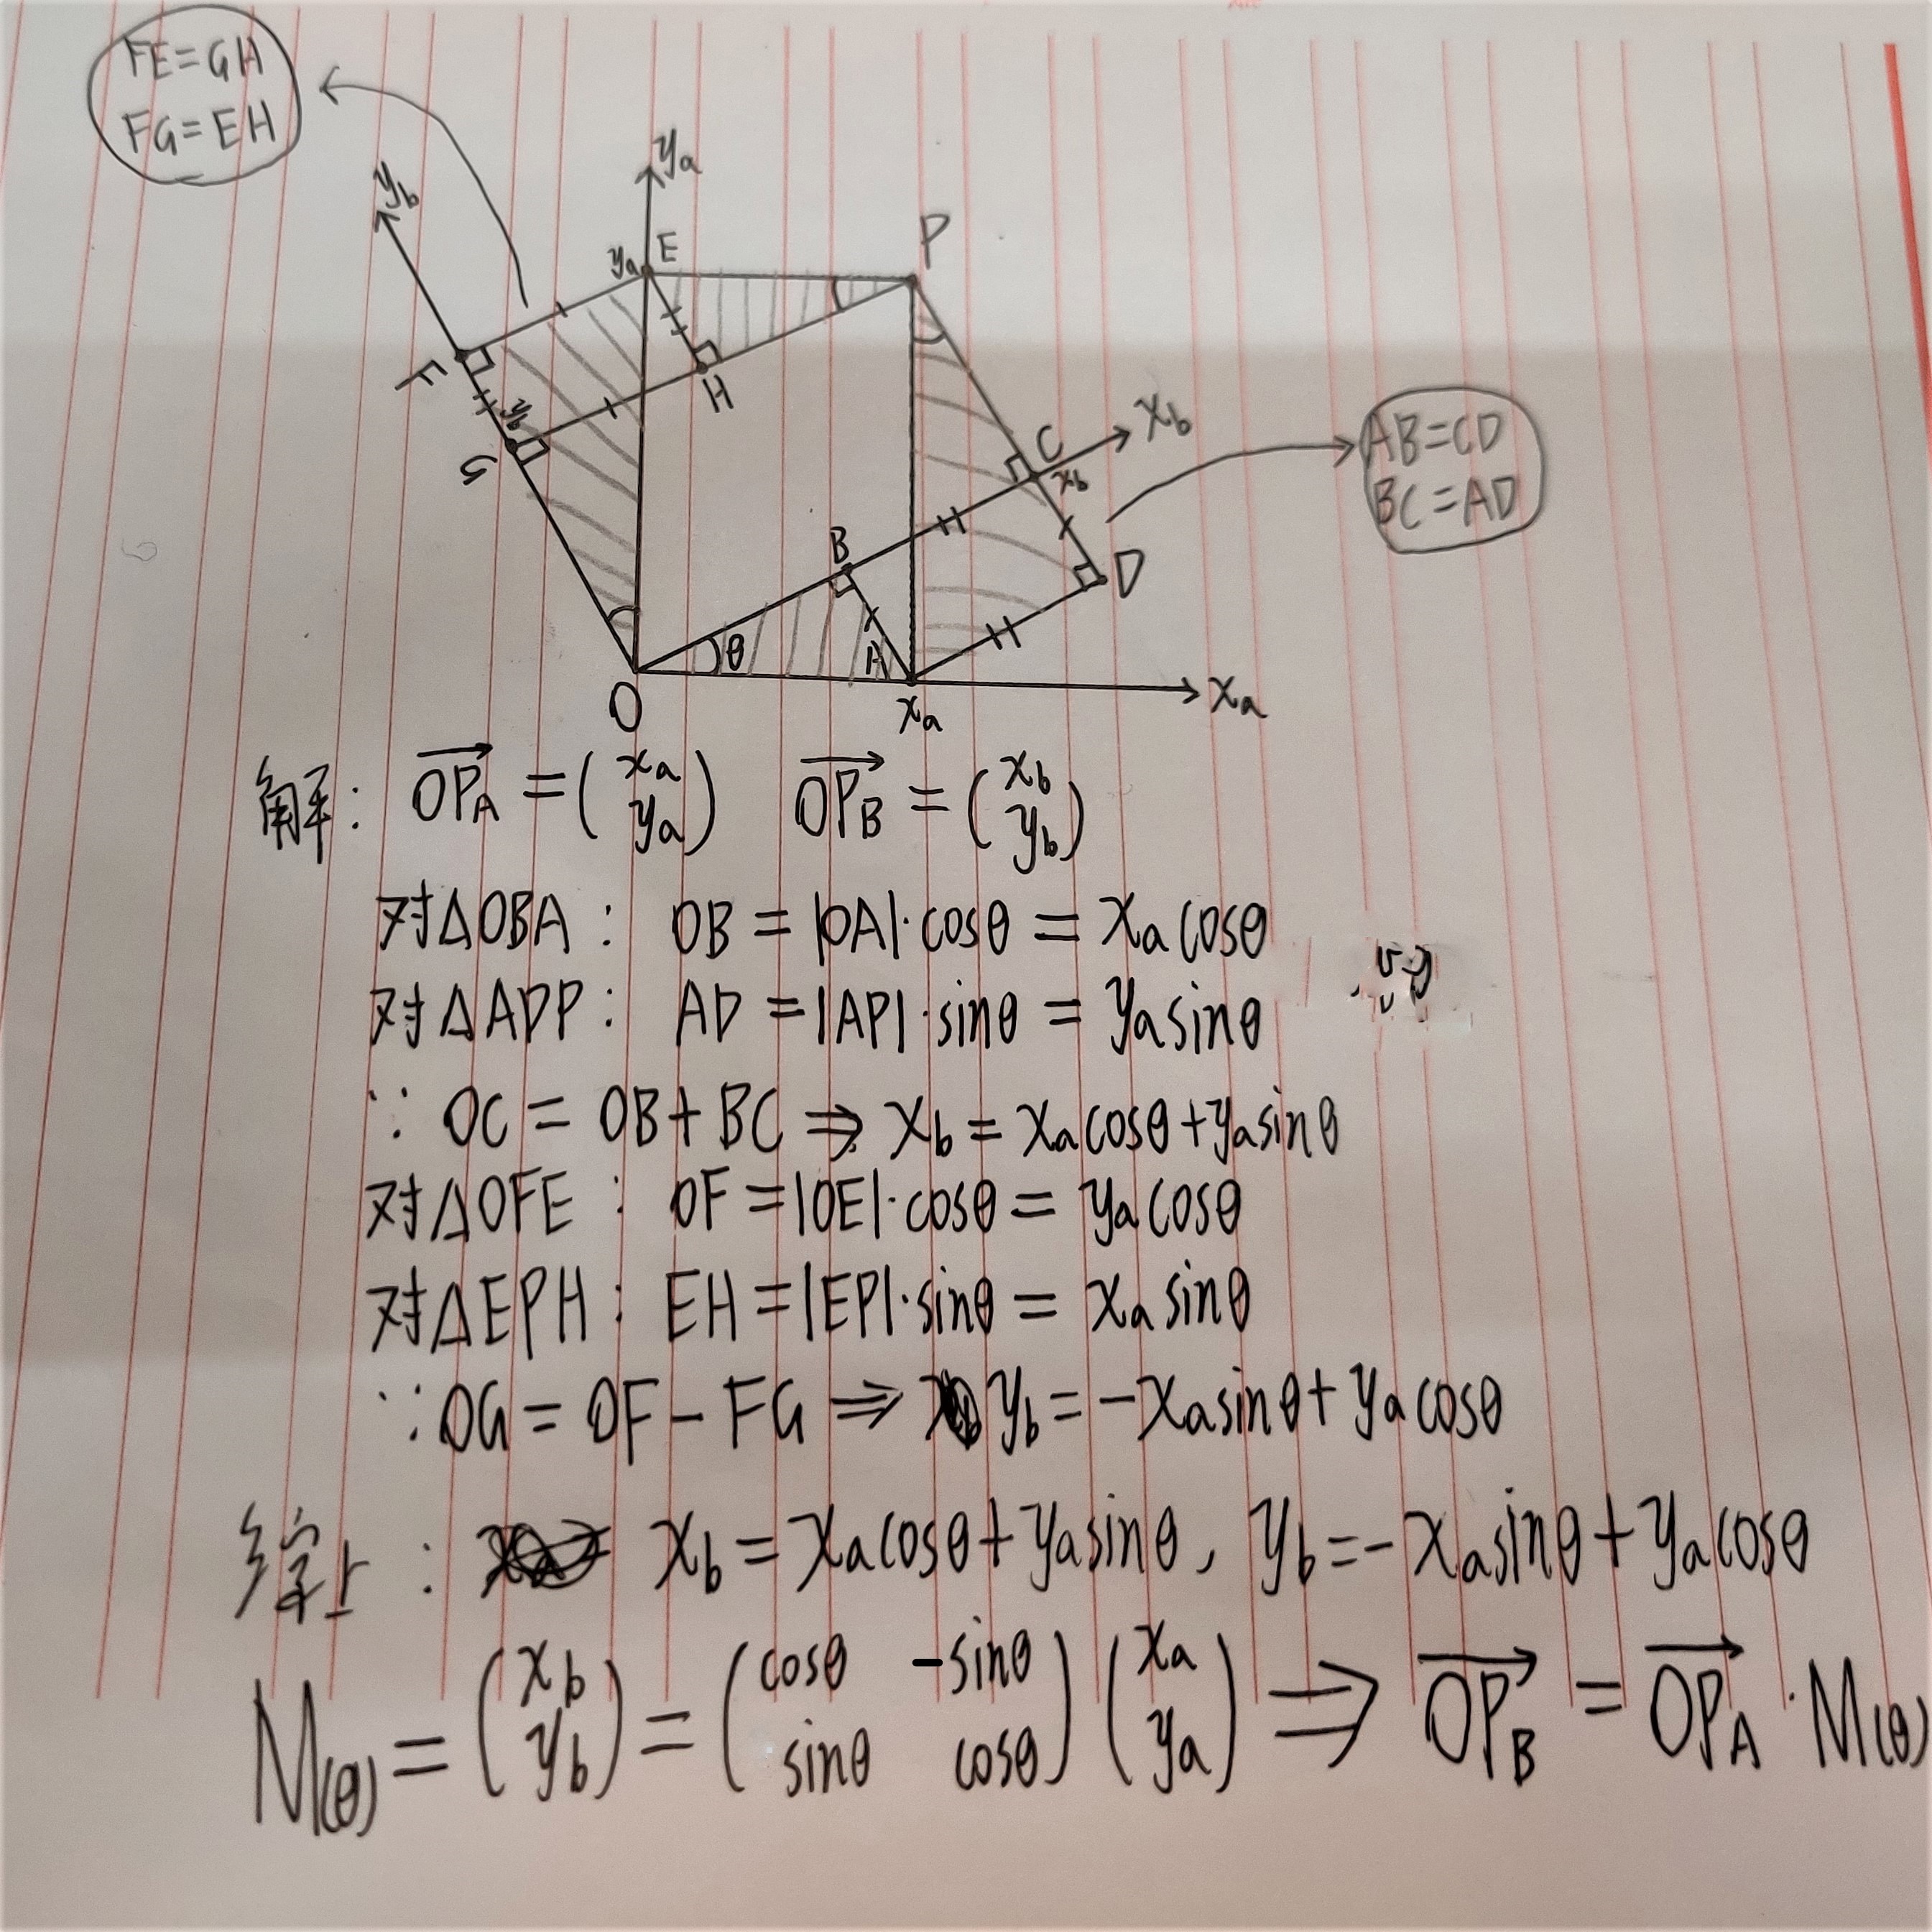 FE=GH
FG=EH
yb
ya
ya E
P
F
yb
G
H
C
Xb
xb
AB=CD
BC=AD
B
D
θ
A
O
xa
Xa
解: OP_A→ = (xa ya) OP_B→ = (xb yb)
对△OBA: OB = |OA|·cosθ = xa cosθ
对△ADP: AD = |AP|·sinθ = ya sinθ
∵ OC = OB + BC ⇒ xb = xa cosθ + ya sinθ
对△OFE: OF = |OE|·cosθ = ya cosθ
对△EPH: EH = |EP|·sinθ = xa sinθ
∵ OG = OF - FG ⇒ yb = -xa sinθ + ya cosθ
综上: xb = xa cosθ + ya sinθ, yb = -xa sinθ + ya cosθ
M(θ) = (xb yb) = (cosθ -sinθ sinθ cosθ) (xa ya) ⇒ OP_B→ = OP_A→ · M(θ)